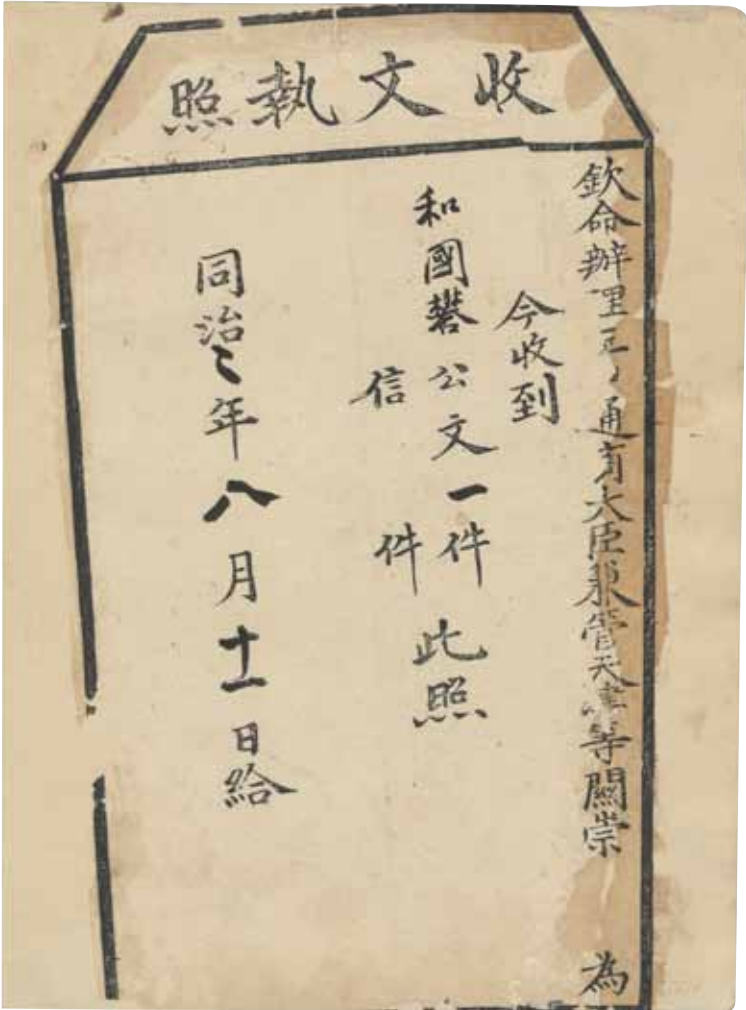 收文執照
欽命辦理三口通商大臣兼管天津等關崇 為
今收到
和國礬公文一件 此照
信 件
同治二年八月十一日給